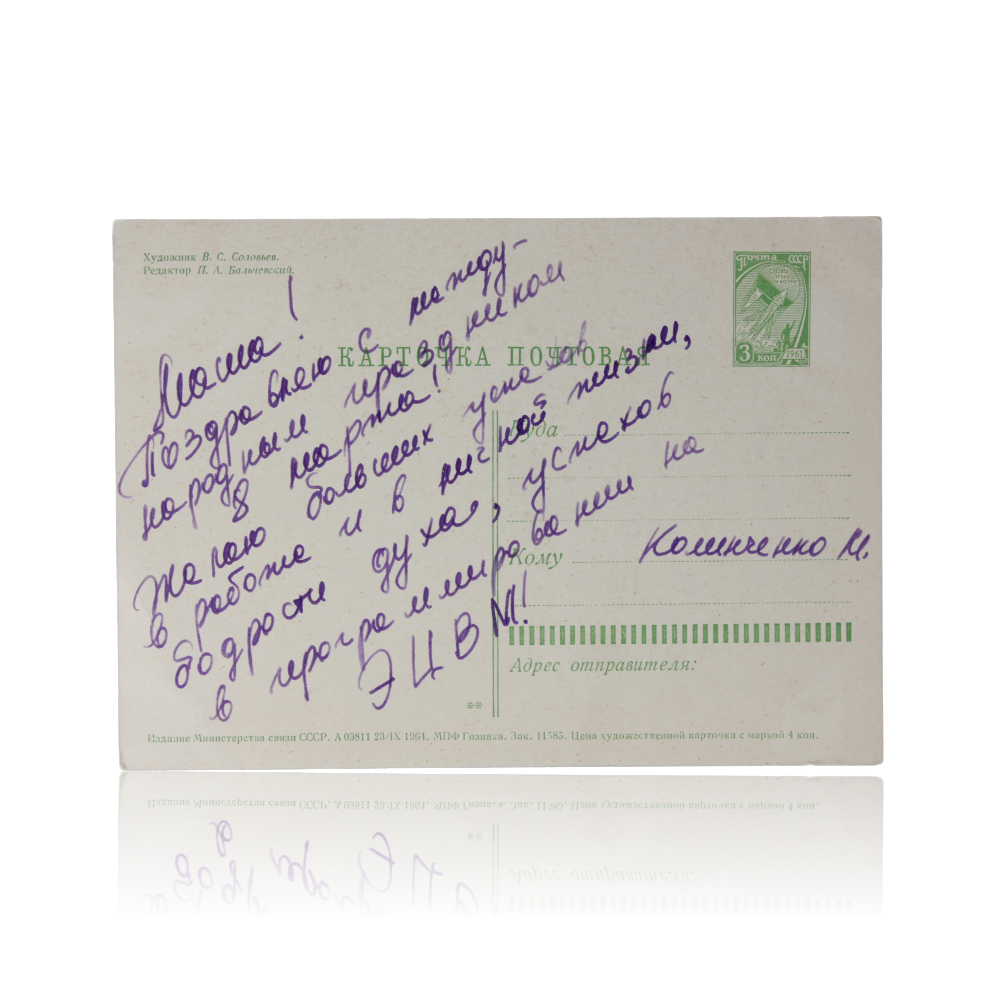 Художник В. С. Соловьев.
Редактор П. А. Бальчевский.
ПОЧТА СССР
3 коп
1961
КАРТОЧКА ПОЧТОВАЯ
Маша!
Поздравляю с между-
народным праздником
8 марта!
Желаю больших успехов
в работе и в личной жизни,
бодрости духа, успехов
в программировании на
ЭЦВМ!
Куда
Кому Калинченко М.
Адрес отправителя:
**
Издание Министерства связи СССР. А 09811 23/IX 1961. МПФ Гознака. Зак. 11585. Цена художественной карточки с маркой 4 коп.